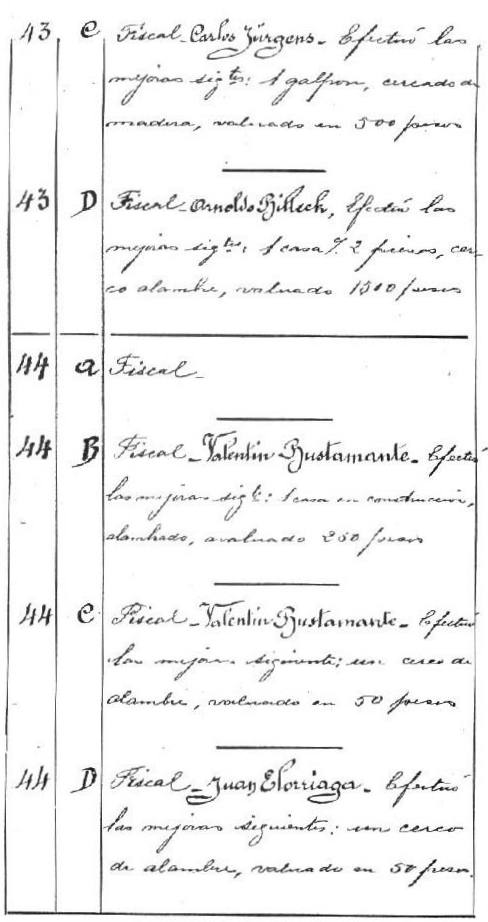 43 C Fiscal - Carlos Jürgens - Efectuó las
mejoras sigtes: 1 galpon, cercado de
madera, valuado en 500 pesos
43 D Fiscal - Arnoldo Billeck, Efectuó las
mejoras sigtes: 1 casa % 2 piezas, cer-
co alambre, valuado 1500 pesos
44 a Fiscal -
44 B Fiscal - Valentín Bustamante - Efectuó
las mejoras sigte: 1 casa en construccion,
alambrado, avaluado 250 pesos
44 C Fiscal - Valentín Bustamante - Efectuó
las mejoras siguiente: un cerco de
alambre, valuado en 50 pesos
44 D Fiscal - Juan Elorriaga - Efectuó
las mejoras siguientes: un cerco
de alambre, valuado en 50 pesos.